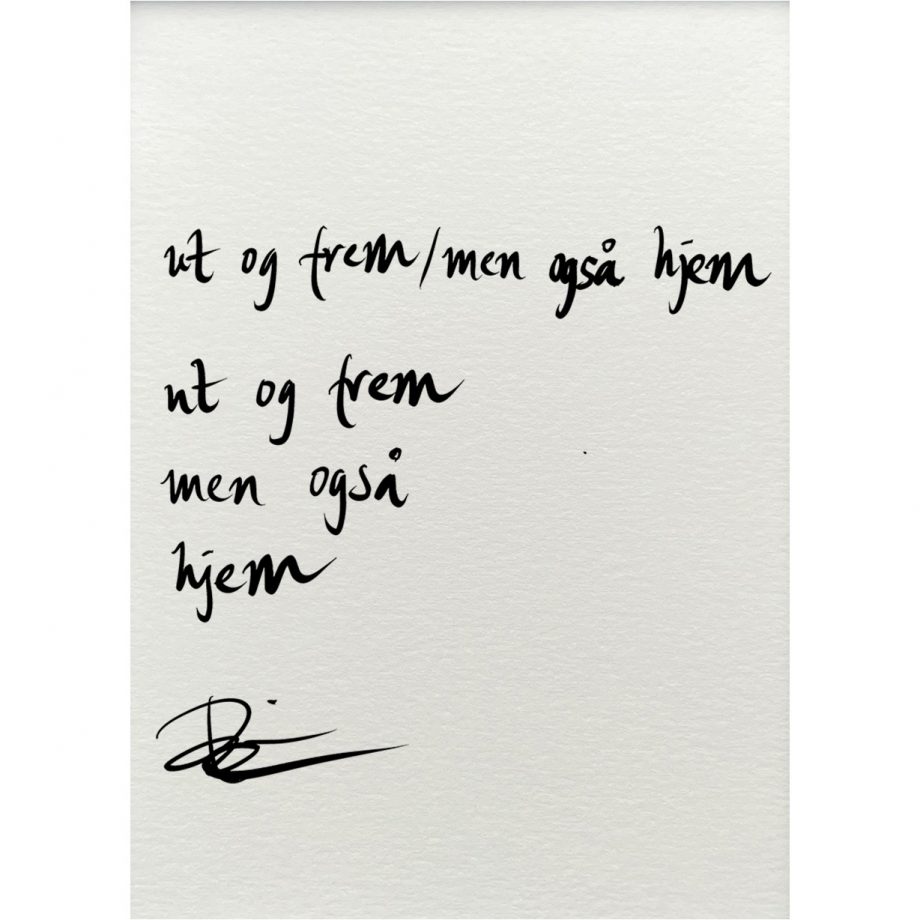 ut og frem/men også hjem
ut og frem
men også
hjem